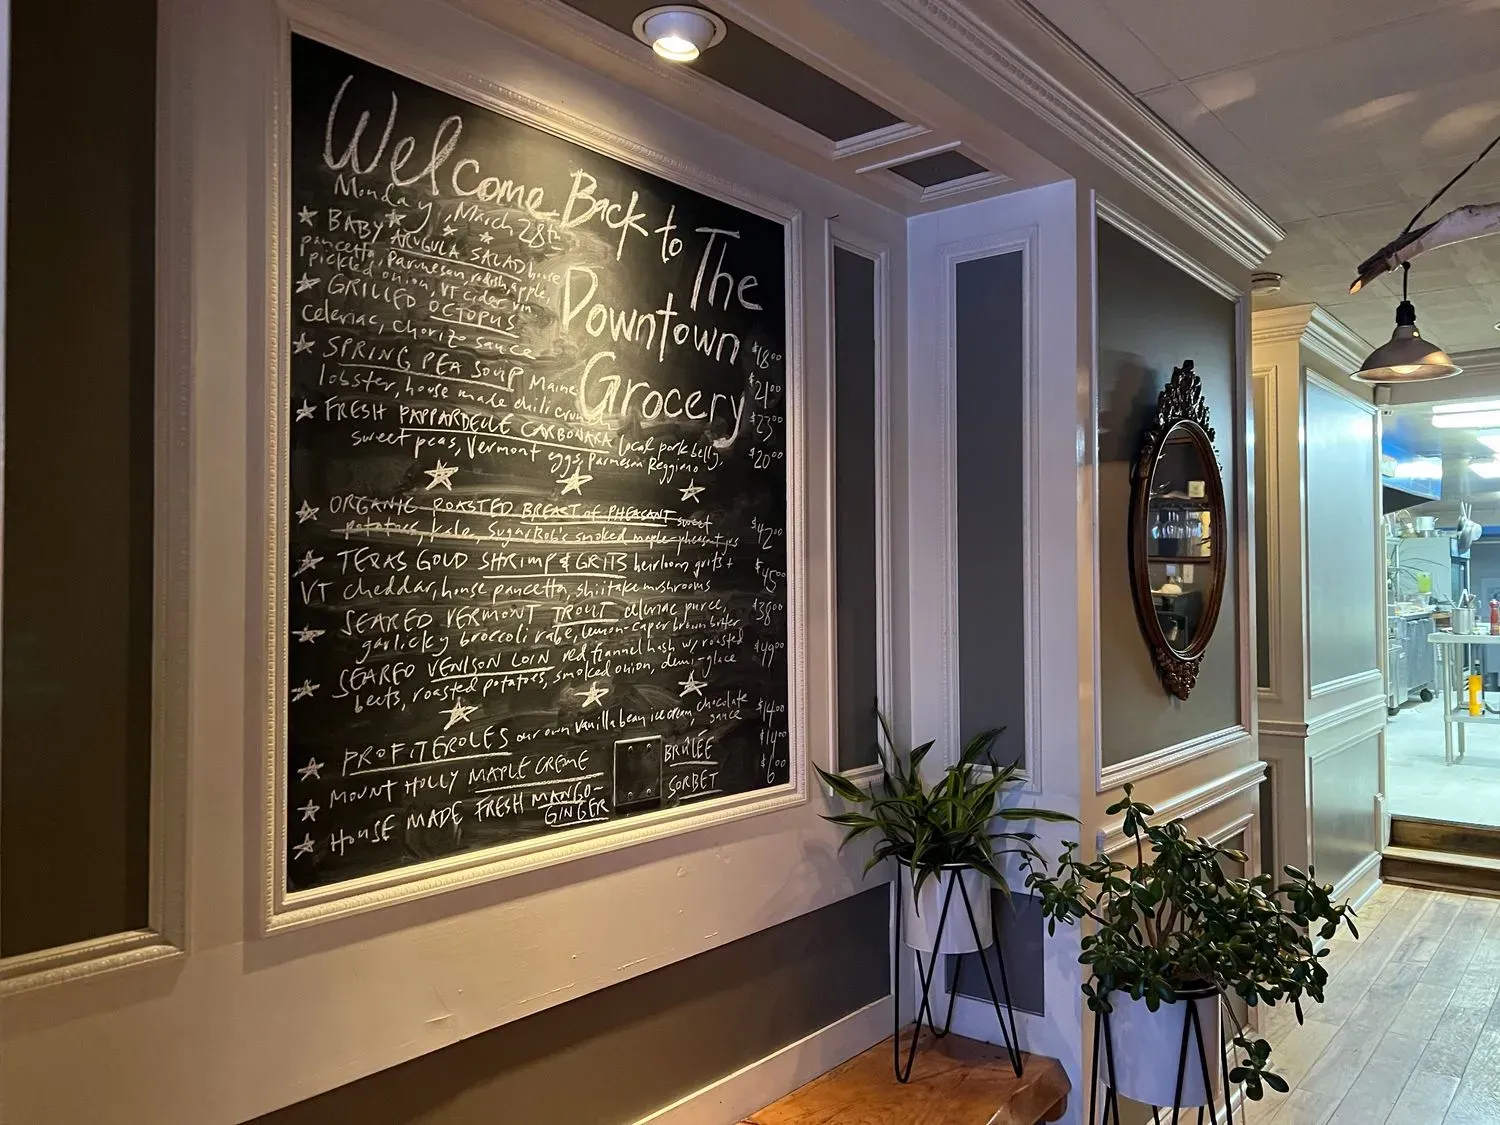 Welcome Back to
The
Downtown
Grocery
Monday, March 28th
BABY ARUGULA SALAD house
pancetta, parmesan, radish, apple,
pickled onion, VT cider vin. $18.00
GRILLED OCTOPUS
celeriac, chorizo sauce $21.00
SPRING PEA SOUP Maine
lobster, house made chili crunch $23.00
FRESH PAPPARDELLE CARBONARA local pork belly,
sweet peas, Vermont eggs, Parmesan Reggiano $20.00
ORGANIC ROASTED BREAST OF PHEASANT sweet
potatoes, kale, SugarBob's smoked maple-pheasant jus $42.00
TEXAS GOLD SHRIMP & GRITS heirloom grits +
VT cheddar, house pancetta, shiitake mushrooms $45.00
SEARED VERMONT TROUT celeriac puree,
garlicky broccoli rabe, lemon-caper brown butter $38.00
SEARED VENISON LOIN red flannel hash w/ roasted
beets, roasted potatoes, smoked onion, demi-glace $49.00
PROFITEROLES our own vanilla bean ice cream, chocolate
sauce $14.00
MOUNT HOLLY MAPLE CREME BRÛLÉE $14.00
HOUSE MADE FRESH MANGO-
GINGER SORBET $6.00